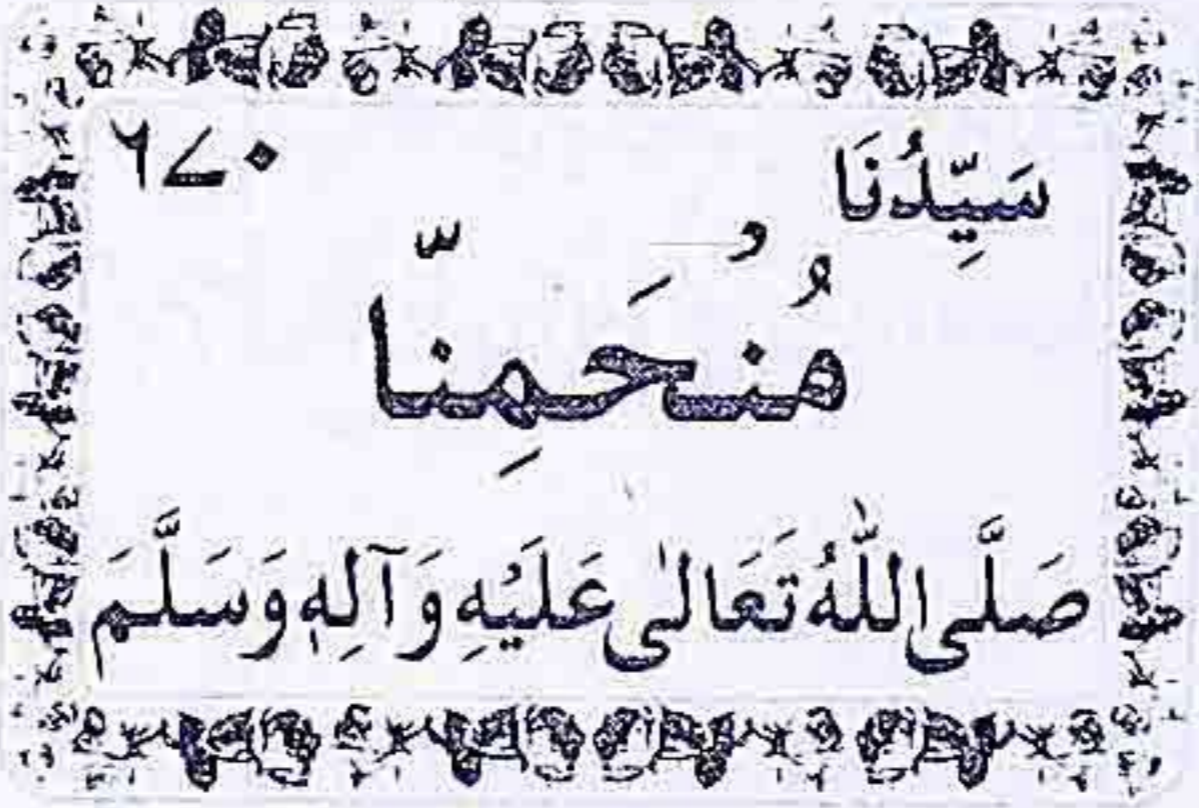 سَيِّدُنَا ٦٧٠
مُنْحَمِنَّا
صَلَّى اللّٰهُ تَعَالٰى عَلَيْهِ وَآلِهٖ وَسَلَّمَ